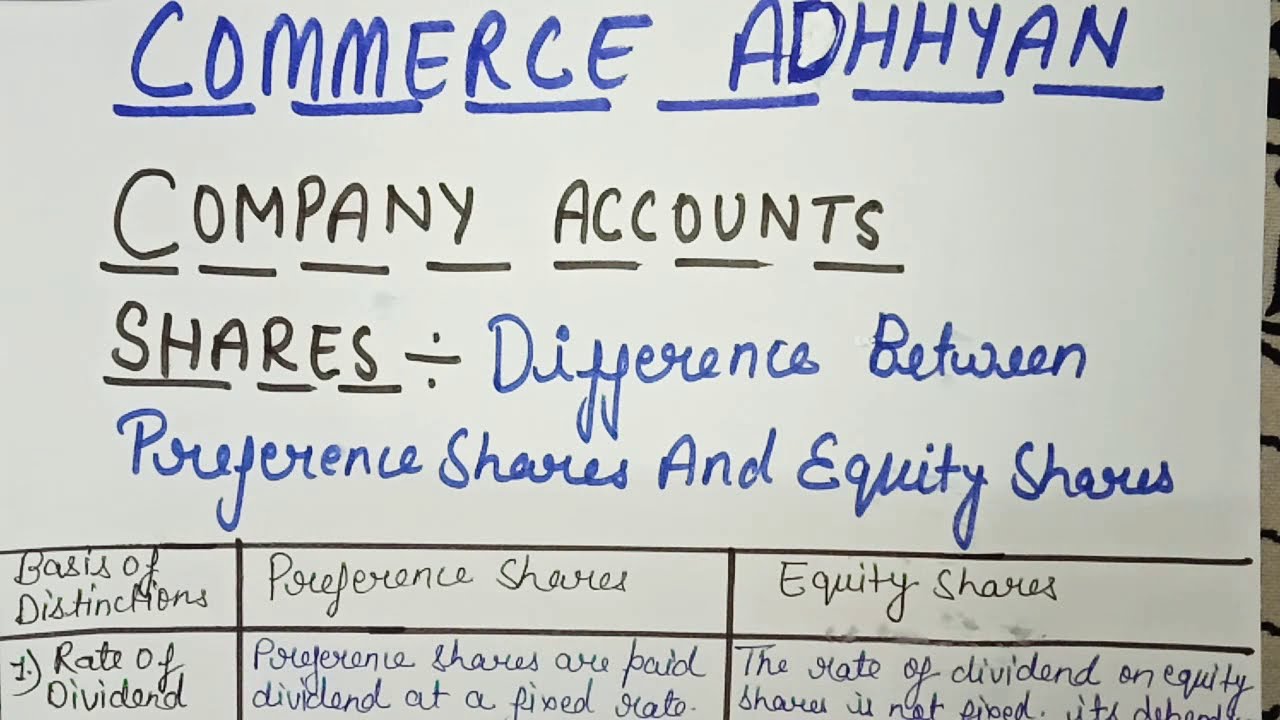 COMMERCE ADHHYAN
COMPANY ACCOUNTS
SHARES ÷ Difference Between
Preference Shares And Equity Shares
Basis of Distinctions
Preference Shares
Equity Shares
1.) Rate Of Dividend
Preference shares are paid
dividend at a fixed rate.
The rate of dividend on equity
shares is not fixed. its depends